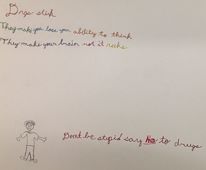 Drgs stik
They make you lose your ability to think
They make your brain rot it reeks
Dont be stupid say no to drugs